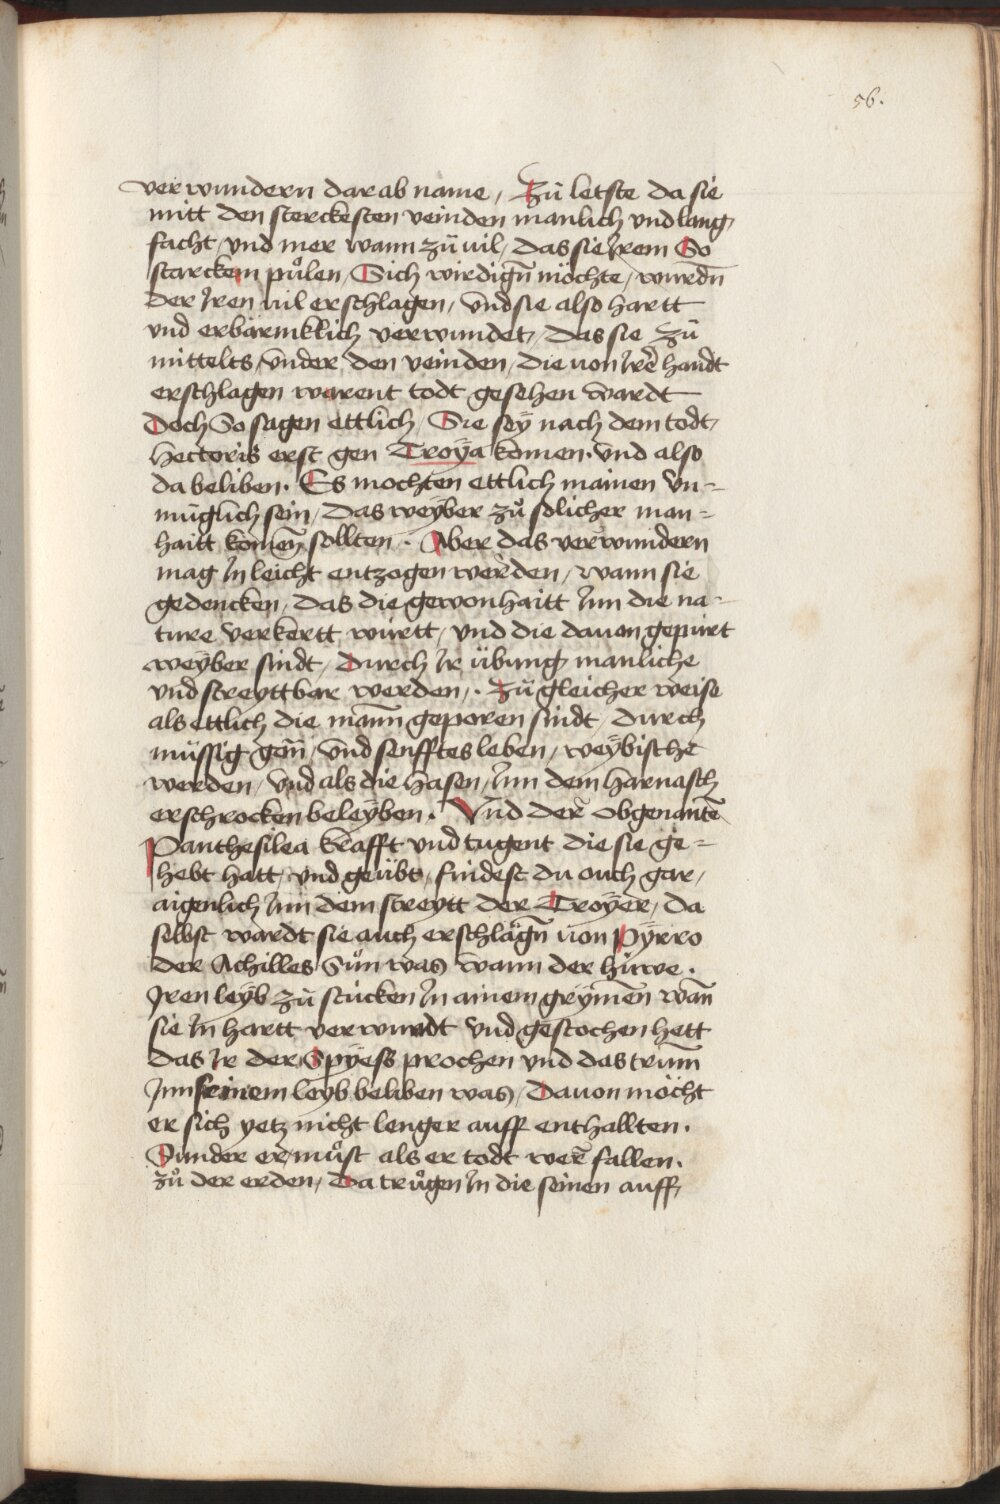 56.
verwundern darab name / Zů letste da sie
mitt den sterckesten veinden manlich vnd lang /
facht / vnd mer wann zů uil / das sie Irem So
starckem půlen / Sich wirdigñ möchte / wurdñ
der Iren uil erschlagen / vnd sie also hartt
vnd erbärmklich verwundet / das sie zů
mittelts / vnder den veinden / die uon Irē handt
erschlagen warent todt gesehen wardt
Doch So sagen ettlich / Sie seÿ nach dem todt /
hectoris erst gen Troÿa komen · vnd also
da beliben · Es mochten ettlich mainen vn-
muglich sein / das weÿber zů solicher man-
haitt komen sollten · Aber das verwundern
mag In leicht entzogen werden / wann sie
gedencken / das die gewonhaitt Inn die na-
ture verkertt württ / vnd die dauon gepürt
weÿber sindt / durch Ir übung manliche
vnd streyttbar werden / · zů gleicher weise
als ettlich die mann geporen sindt / durch
müssig gen / vnd senfftes leben / weÿbische
werden / vnd als die hasen / Inn dem harnasch
erschrocken beleÿben · Vnd der obgenantē
Panthesilea krafft vnd tugent die sie ge-
hebt hatt / vnd geübt / findest du ouch gar /
aigenlich Inn dem streytt der Troÿer / da
selbst wardt sie auch erschlagñ uon Pÿrro
der Achilles Sůn was wann der hiwe ·
Iren leÿb zů stucken In ainem grÿmen wan
sie In hartt verwundt vnd gestochen hett
das Ir der Spÿess prochen vnd das trum
Inn seinem leyb beliben was / Dauon möcht
er sich yetz nicht lenger auff enthallten ·
Sunder er můst als er todt wer fallen ·
zů der erden / Da trůgen In die seinen auff /